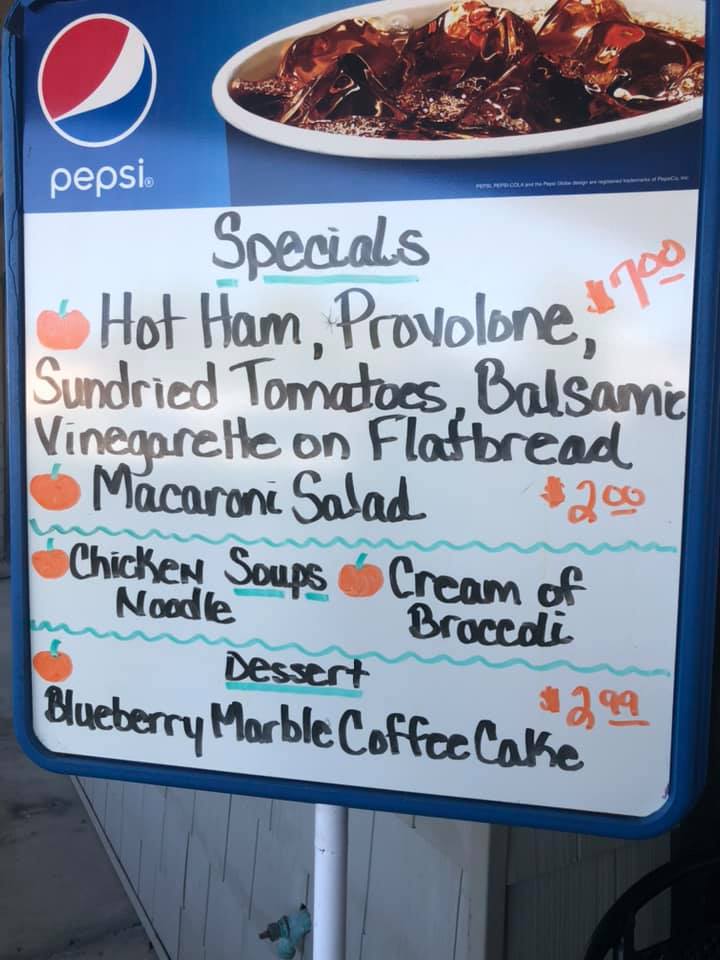 pepsi®
PEPSI, PEPSI-COLA and the Pepsi Globe design are registered trademarks of PepsiCo, Inc.
Specials
Hot Ham, Provolone, $7.00
Sundried Tomatoes, Balsamic
Vinegarette on Flatbread
Macaroni Salad $2.00
Chicken Soups Cream of
Noodle Broccoli
Dessert
$2.99
Blueberry Marble Coffee Cake